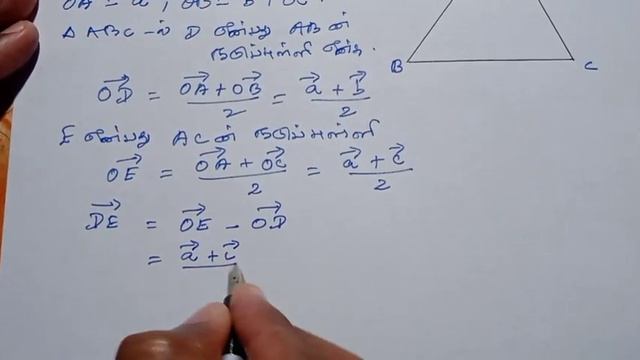 Δ ABC-ல் D என்பது ABன்
நடுப்புள்ளி என்க.
B
C
OD⃗ = (OA⃗ + OB⃗)/2 = (a⃗ + b⃗)/2
E என்பது ACன் நடுப்புள்ளி
OE⃗ = (OA⃗ + OC⃗)/2 = (a⃗ + c⃗)/2
DE⃗ = OE⃗ − OD⃗
= a⃗ + c⃗